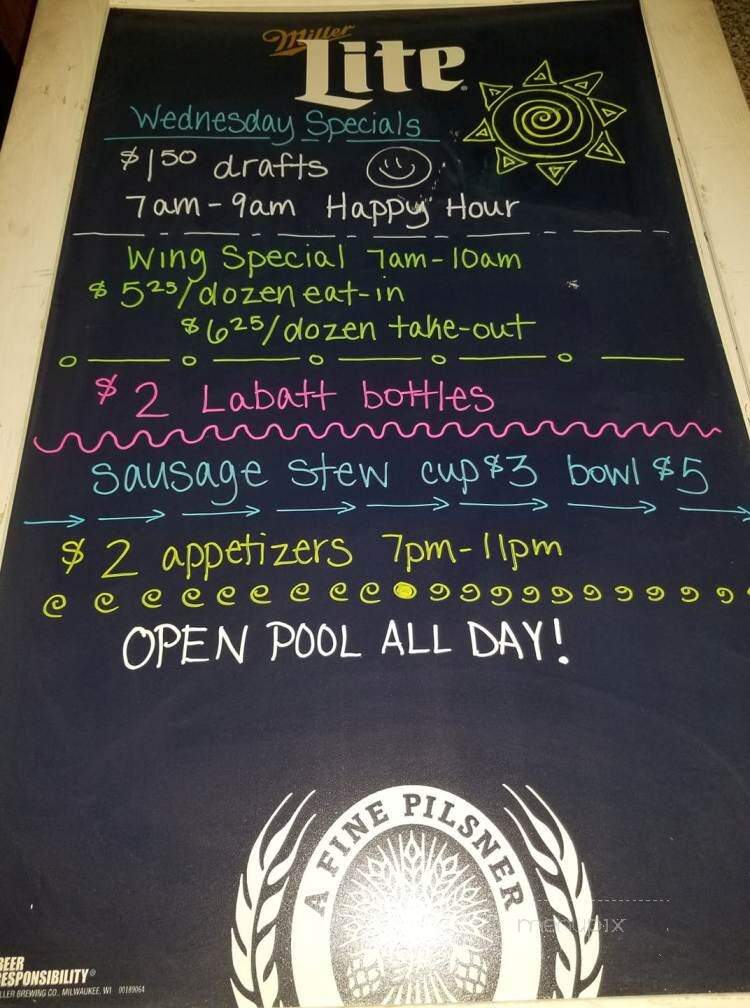 Miller
Lite
Wednesday Specials
$1 50 drafts
7am-9am Happy Hour
Wing Special 7am-10am
$5 25/dozen eat-in
$6 25/dozen take-out
$2 Labatt bottles
Sausage Stew cup $3 bowl $5
$2 appetizers 7pm-11pm
OPEN POOL ALL DAY!
A FINE PILSNER
menupix
BEER
RESPONSIBILITY®
LLER BREWING CO., MILWAUKEE, WI 00189064